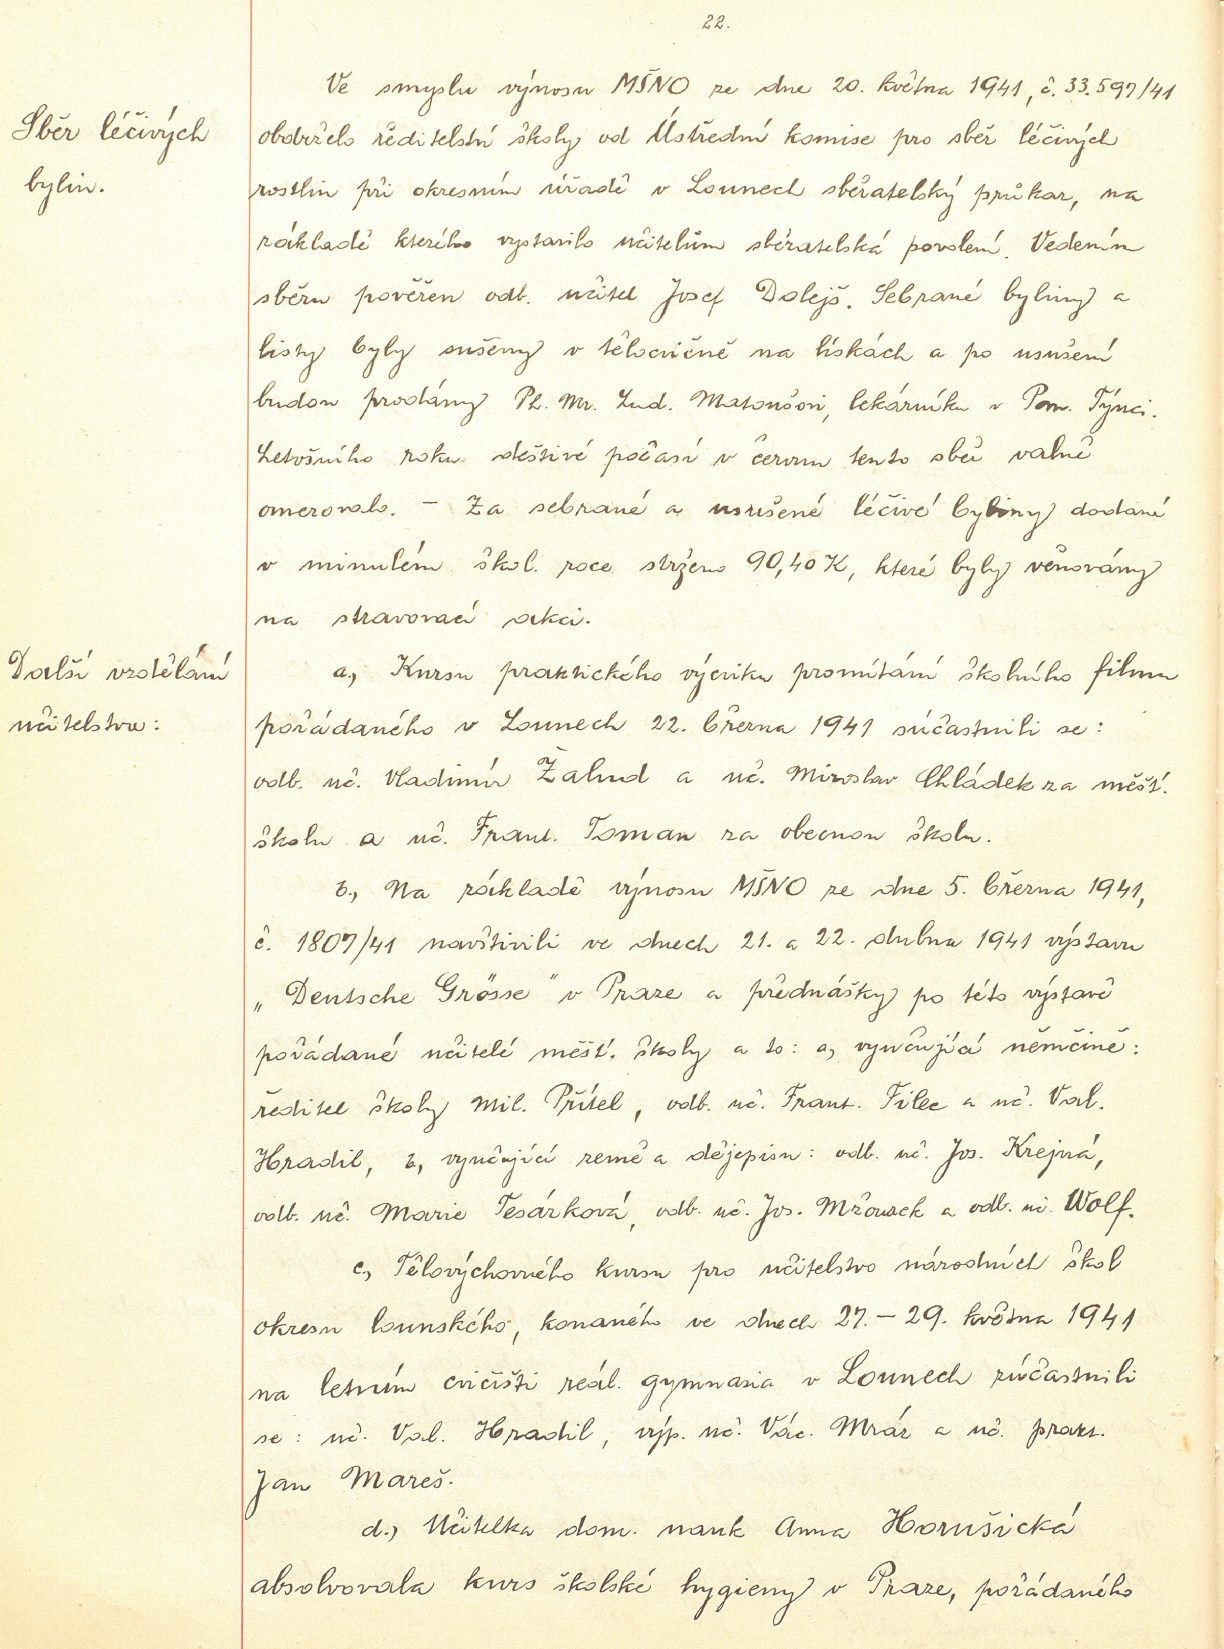 22.
Sběr léčivých
bylin.
Ve smyslu výnosu MŠNO ze dne 20. května 1941, č. 33.597/41
obdrželo ředitelství školy od Ústřední komise pro sběr léčivých
rostlin při okresním úřadě v Lounech sběratelský průkaz, na
základě kterého vystavilo učitelům sběratelská povolení. Vedením
sběru pověřen odb. učitel Josef Dolejš. Sebrané byliny a
listy byly sušeny v tělocvičně na lískách a po usušení
budou prodány Ph. Mr. Lud. Matoušovi, lékárníku v Pan. Týnci.
Letošního roku deštivé počasí v červnu tento sběr valně
omezovalo. – Za sebrané a usušené léčivé byliny dodané
v minulém škol. roce strženo 90,40 K, které byly věnovány
na stravovací akci.
Další vzdělání
učitelstva:
a, Kursu praktického výcviku promítání školního filmu
pořádaného v Lounech 22. března 1941 súčastnili se:
odb. uč. Vladimír Žalud a uč. Miroslav Chládek za měšť.
školu a uč. Frant. Toman za obecnou školu.
b., Na základě výnosu MŠNO ze dne 5. března 1941,
č. 1807/41 navštívili ve dnech 21. a 22. dubna 1941 výstavu
„Deutsche Grösse" v Praze a přednášky po této výstavě
pořádané učitelé měšť. školy a to: a, vyučující němčině:
ředitel školy Mil. Přítel, odb. uč. Frant. Filec a uč. Val.
Hradil, b, vyučující země a dějepisu: odb. uč. Jos. Krejzá,
odb. uč. Marie Tesárková, odb. uč. Jos. Mžourek a odb. uč. Wolf.
c, Tělovýchovného kursu pro učitelstvo národních škol
okresu lounského, konaného ve dnech 27. – 29. května 1941
na letním cvičišti reál. gymnasia v Lounech zúčastnili
se: uč. Val. Hradil, výp. uč. Vác. Mráz a uč. prakt.
Jan Mareš.
d., Učitelka dom. nauk Anna Horušická
absolvovala kurs školské hygieny v Praze, pořádaného